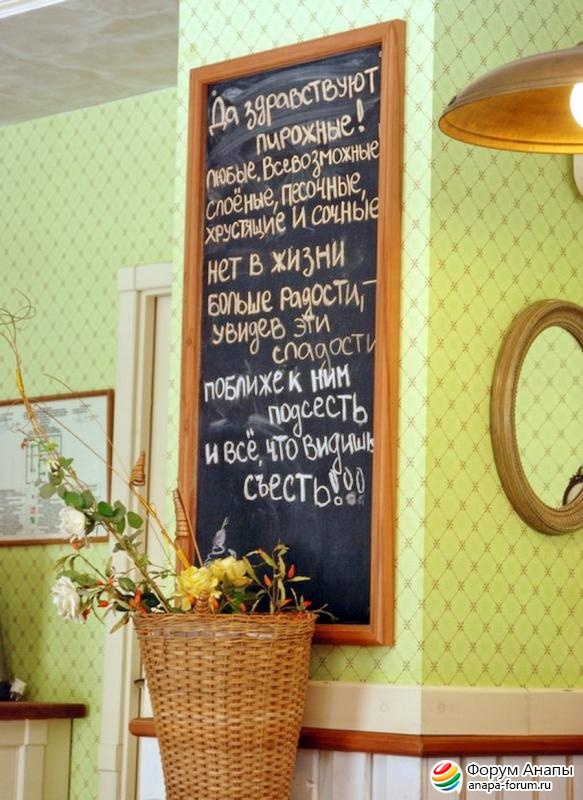 Да здравствуют
пирожные!
Любые, Всевозможные
слоёные, песочные,
хрустящие и сочные
нет в жизни
больше радости,-
увидев эти
сладости
поближе к ним
подсесть
и всё, что видишь
съесть!!!
Форум Анапы
anapa-forum.ru